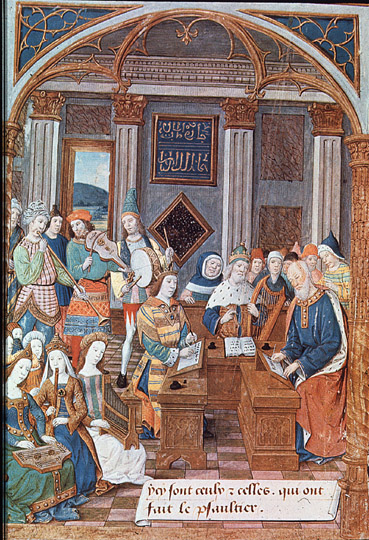 ycy sont ceulx z celles . qui ont
fait le psaultier .